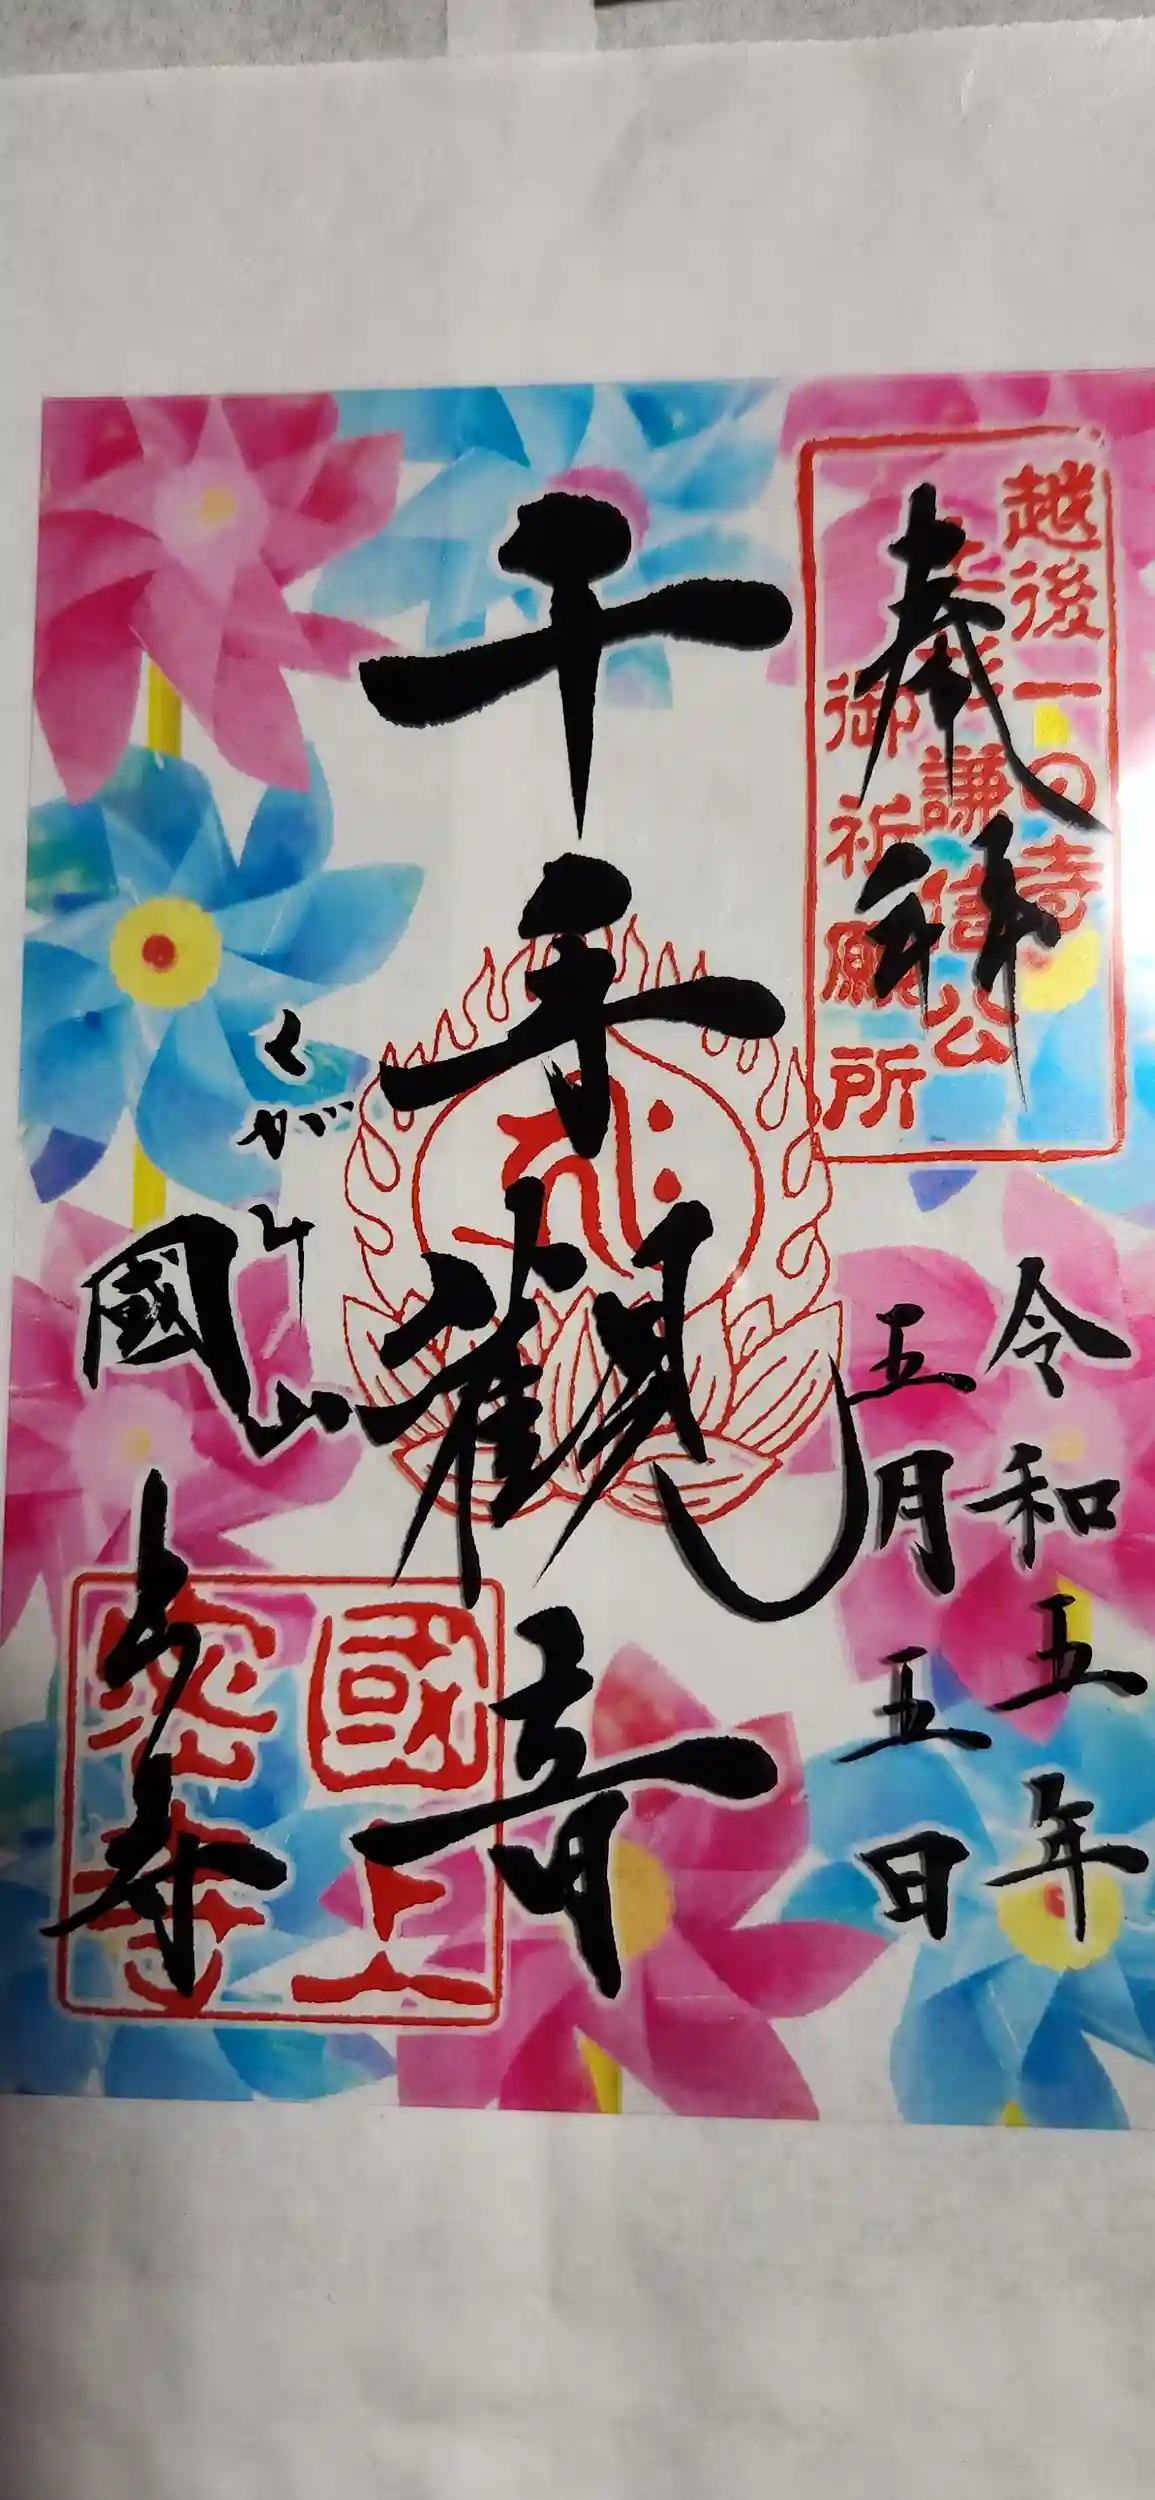 越後一の寺
上杉謙信公
御祈願所
奉拝
令和五年
五月五日
千手観音
くがみ
國上山
国上寺
國上寺